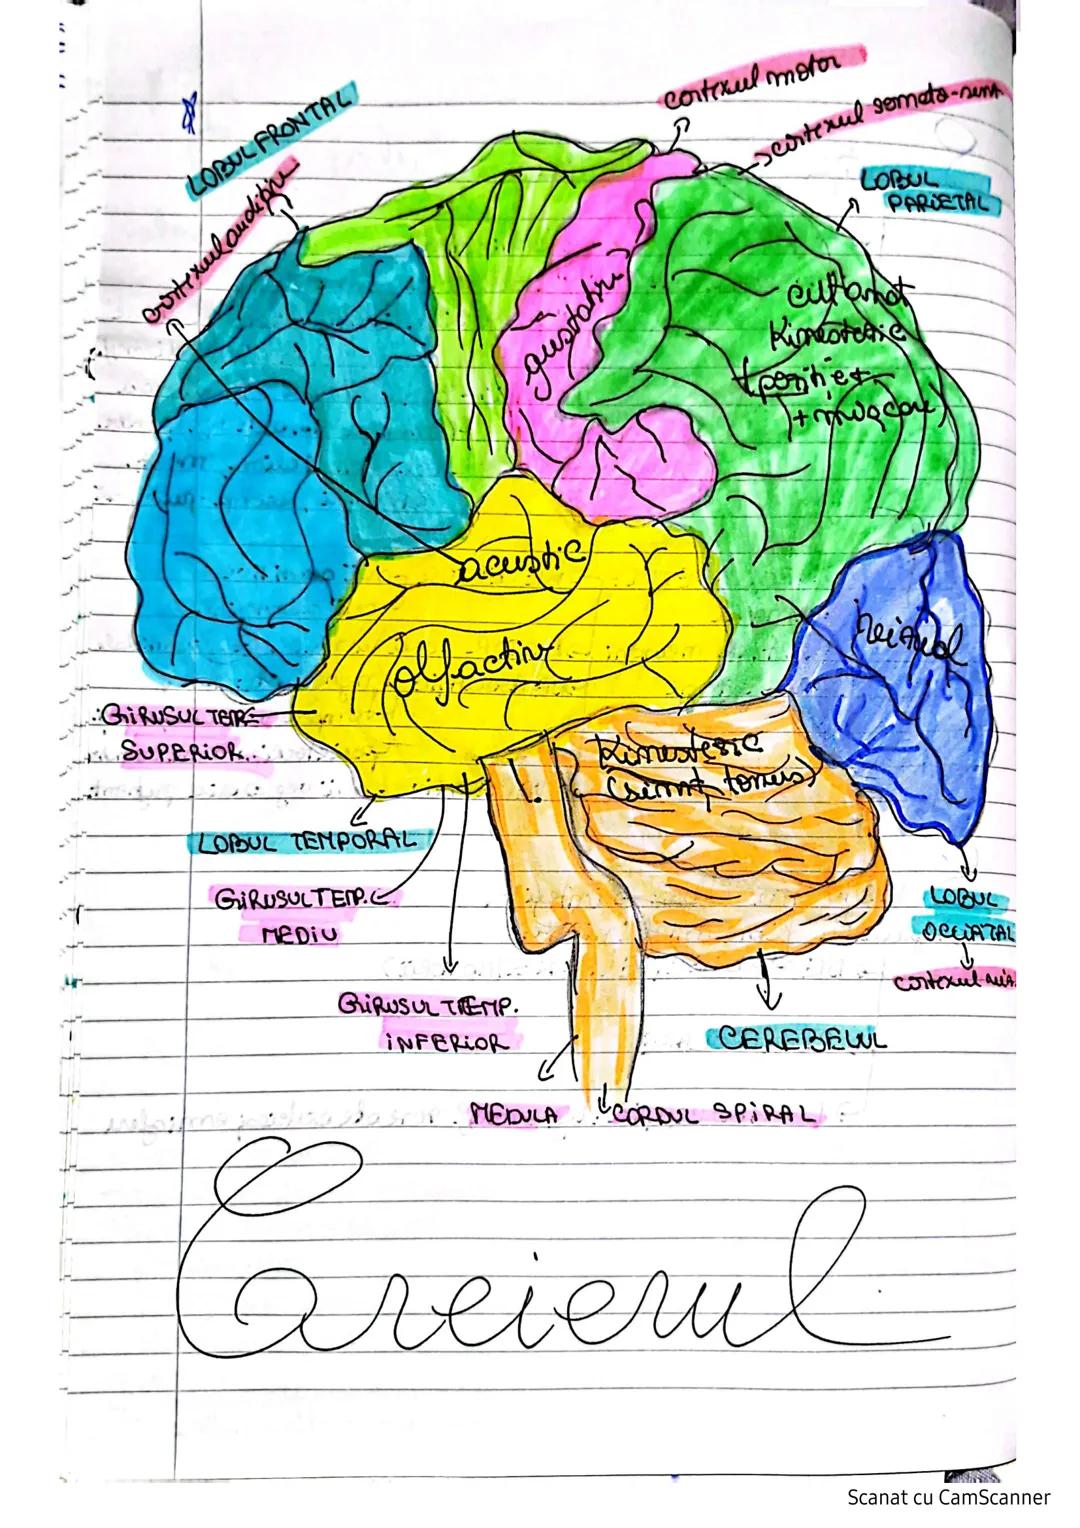 cortexul motor
cortexul somato-sent
LOBUL FRONTAL
cortexul auditiv
LOBUL
PARIETAL
gustativ
cutanat
Kinestezic
(poziție+
+mișcare)
acustic
olfactiv
vizual
GIRUSUL TEMP
SUPERIOR
Kinestezic
(simț tonus)
LOBUL TEMPORAL
GIRUSUL TEMP.
MEDIU
LOBUL
OCCIPITAL
cortexul viz.
GIRUSUL TEMP.
INFERIOR
CEREBELUL
MEDULA
CORDUL SPIRAL
Creierul
Scanat cu CamScanner